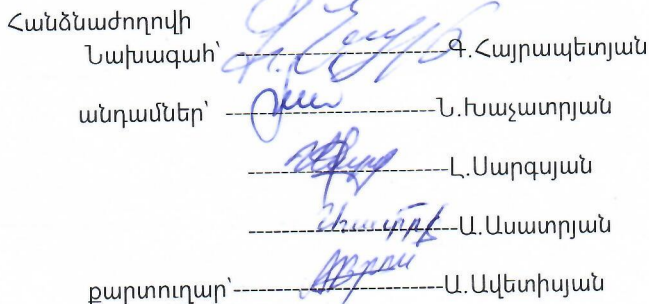 Հանձնաժողովի
Նախագահ՝ ------------------------Գ.Հայրապետյան
անդամներ՝ ------------------------Ն.Խաչատրյան
------------------------Լ.Սարգսյան
------------------------Ա.Ասատրյան
քարտուղար՝------------------------Ա.Ավետիսյան